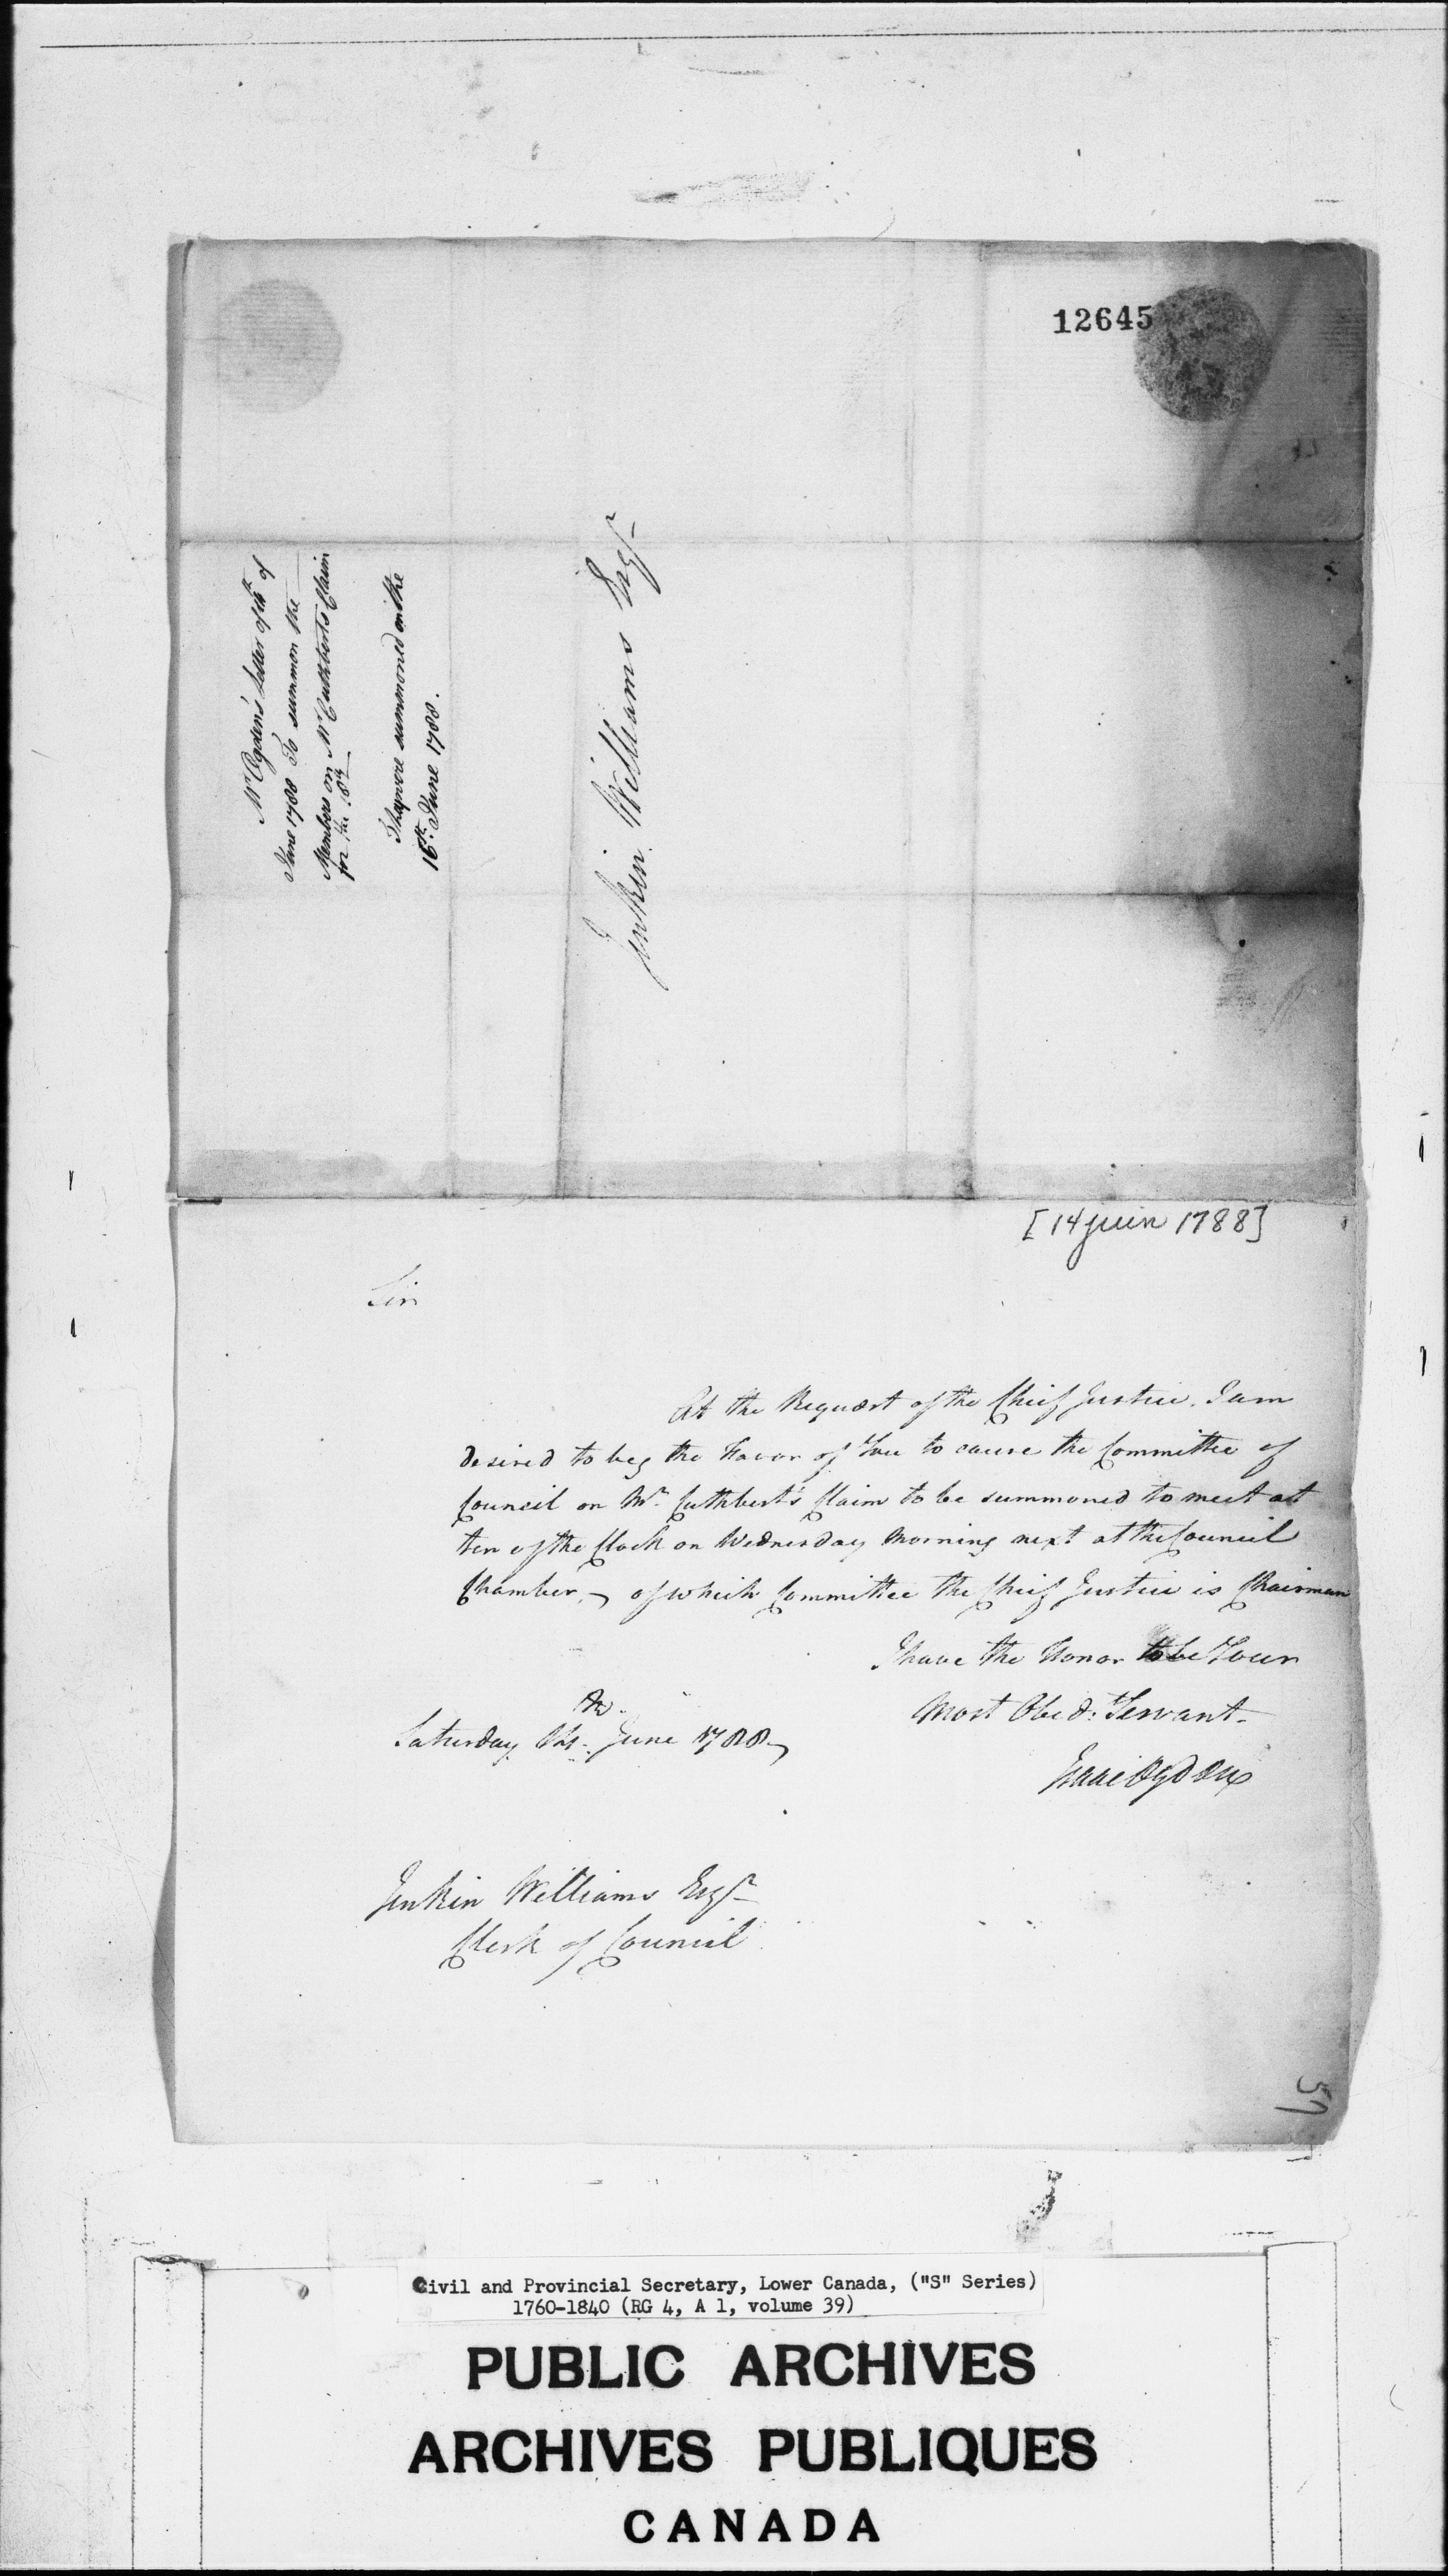 12645
Mr Ogden's Letter of 14th of
June 1788 To summon the
Members on Mr Cuthbert's Claim
for the 18th
They were summoned on the
16th June 1788.
Jenkin Williams Esqr
[14 juin 1788]
Sir
At the Request of the Chief Justice, I am
desired to beg the Favor of You to cause the Committee of
Council on Mr Cuthbert's Claim to be summoned to meet at
ten of the Clock on Wednesday Morning next at the Council
Chamber, of which Committee the Chief Justice is Chairman
I have the Honor to be Your
Most Obed: Servant
Isaac Ogden
Saturday June 1788
Jenkin Williams Esqr
Clerk of Council
57
Civil and Provincial Secretary, Lower Canada, ("S" Series)
1760-1840 (RG 4, A 1, volume 39)
PUBLIC ARCHIVES
ARCHIVES PUBLIQUES
CANADA